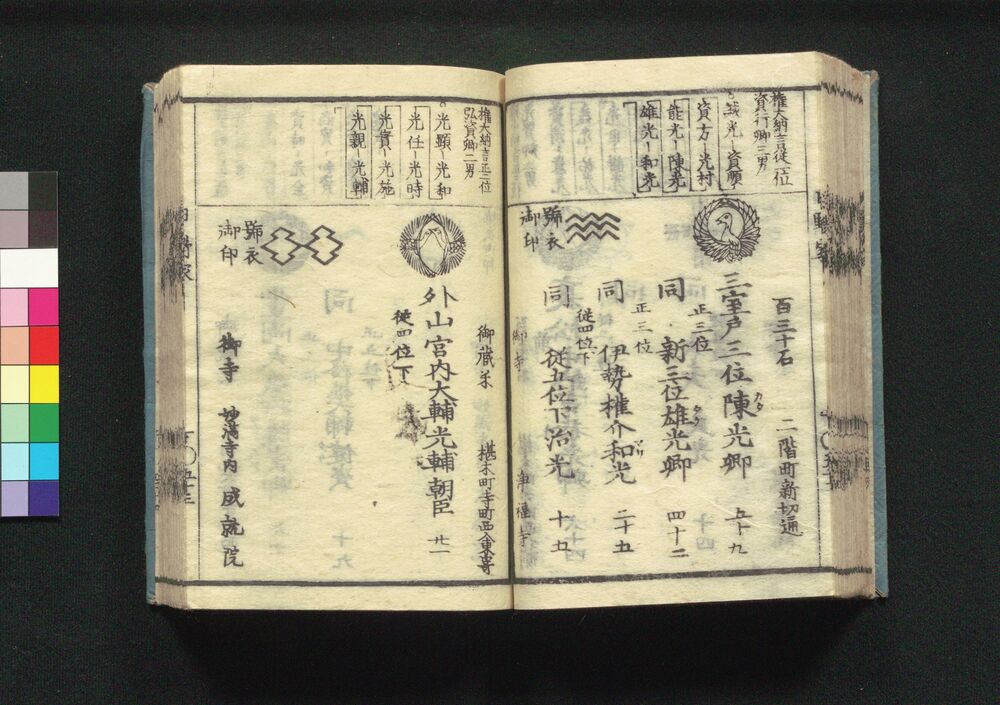 権大納言従一位
資行卿三男
誠光－資順
資方－光村
能光－陳光
雄光－和光
百三十石
二階町新切通
三室戸三位陳光卿
五十九
正三位
同
新三位雄光卿
四十二
正三位
同
伊勢権介和光
二十五
従四位下
同
従五位下治光
十五
雑衣
御印
御寺
浄福寺
権大納言正二位
弘資卿二男
光顕－光和
光任－光時
光實－光施
光親－光輔
御蔵米
椹木町寺町西へ入東専
外山宮内大輔光輔朝臣
廿一
従四位下
雑衣
御印
御寺
妙満寺内
成就院